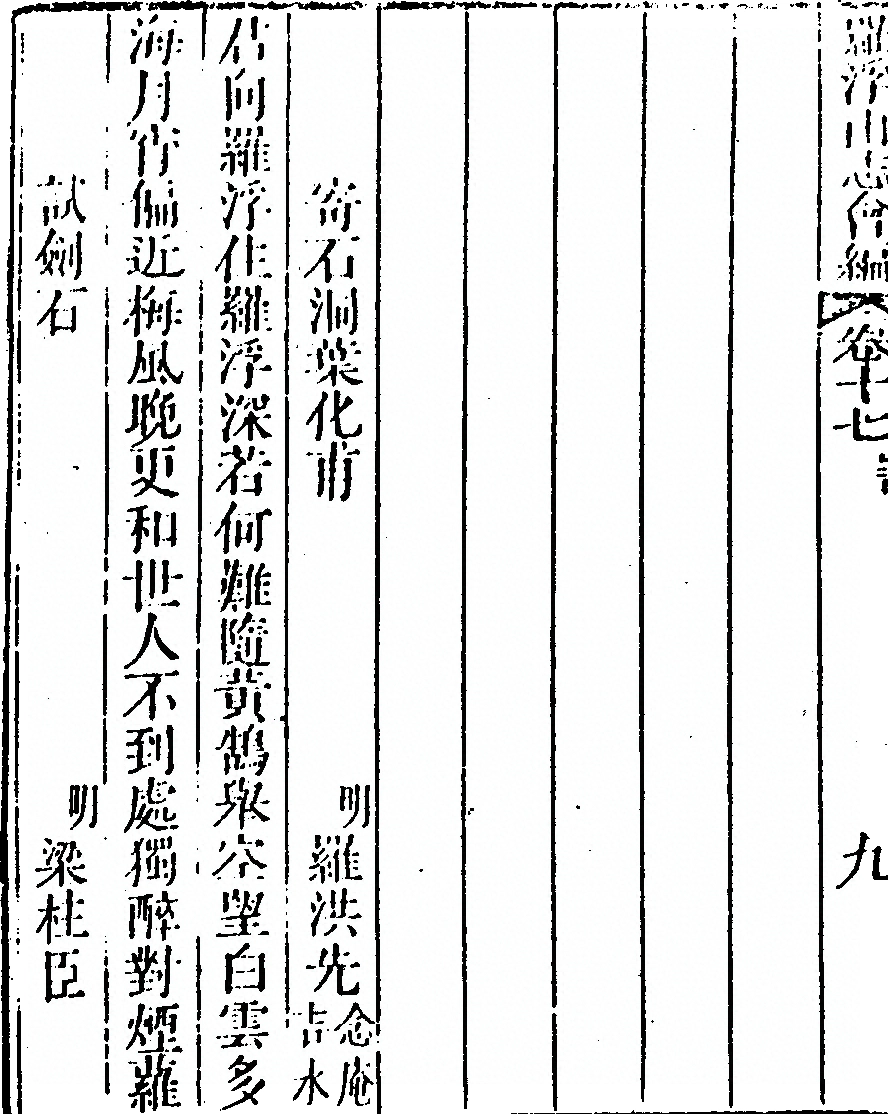 羅浮山志會編 卷十七 九
寄石洞葉化甫 明 羅洪先 念庵 吉水
君向羅浮住羅浮深若何難隨黃鵠舉空望白雲多
海月宵偏近梅風晚更和世人不到處獨醉對煙蘿
試劍石 明 梁柱臣